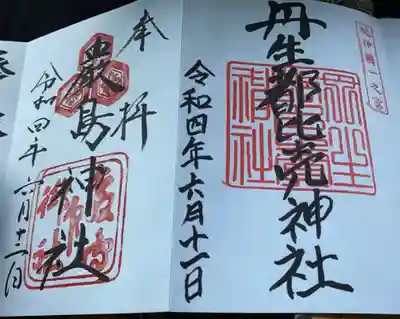 紀伊國一之宮
丹生都比売神社
令和四年六月十一日
奉拝
厳島神社
令和四年六月十二日